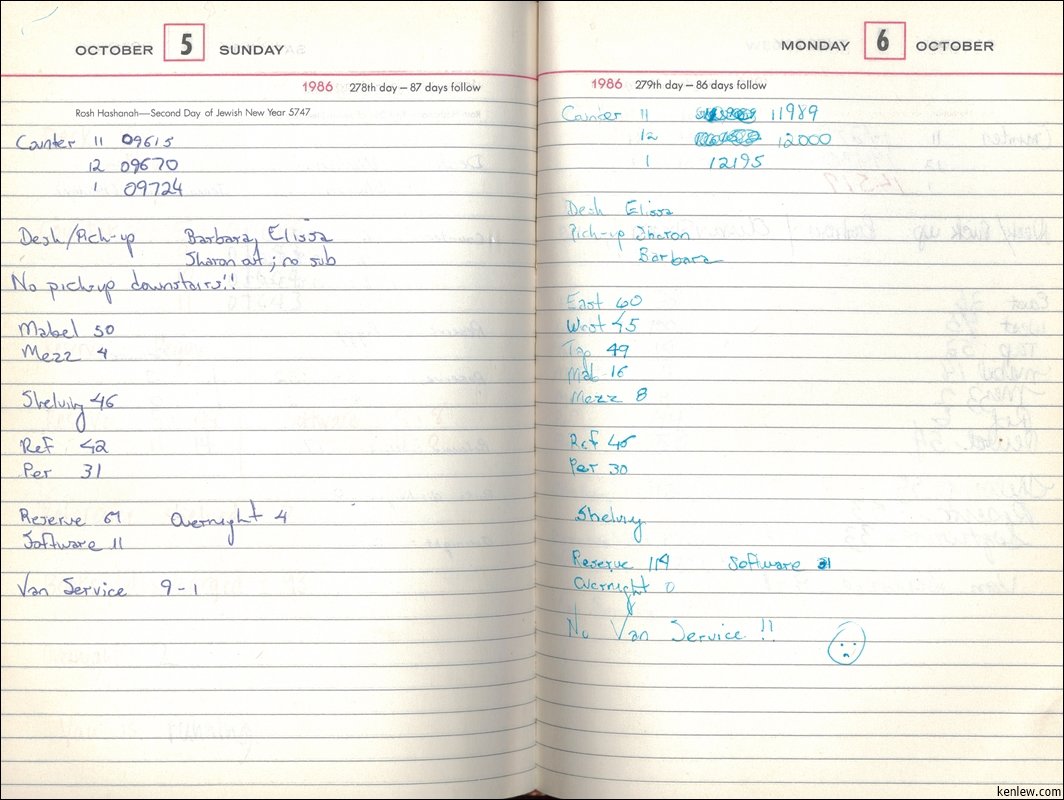 OCTOBER 5 SUNDAY
1986 278th day — 87 days follow
Rosh Hashanah—Second Day of Jewish New Year 5747
Counter 11 09615
12 09670
1 09724
Desk/Pick-up Barbara, Elissa
Sharon out; no sub
No pick-up downstairs!!
Mabel 50
Mezz 4
Shelving 46
Ref 42
Per 31
Reserve 67 Overnight 4
Software 11
Van Service 9-1
MONDAY 6 OCTOBER
1986 279th day — 86 days follow
Counter 11 11989
12 12000
1 12195
Desk Elissa
Pick-up Sharon
Barbara
East 60
West 45
Top 49
Mab 16
Mezz 8
Ref 45
Per 30
Shelving
Reserve 114 Software
Overnight 0
No Van Service!!
kenlew.com